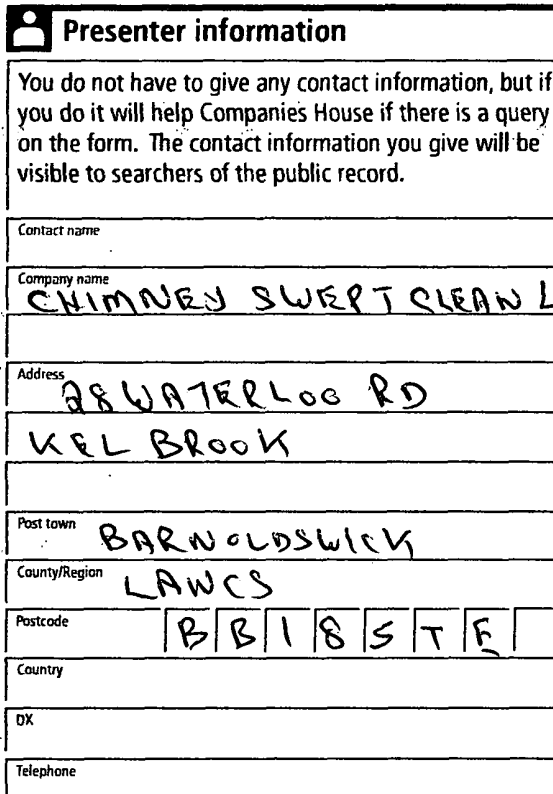 Presenter information
You do not have to give any contact information, but if
you do it will help Companies House if there is a query
on the form. The contact information you give will be
visible to searchers of the public record.
Contact name
Company name
CHIMNEY SWEPT CLEAN L
Address
28 WATERLOO RD
KEL BROOK
Post town
BARNOLDSWICK
County/Region
LANCS
Postcode
BB18 5TE
Country
DX
Telephone